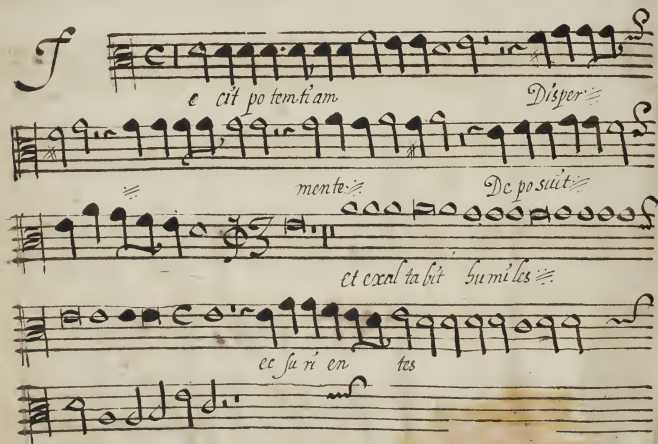 F
e cit po temtiam Disper
mente De po suit
et exal ta bit humiles
ec su ri en tes